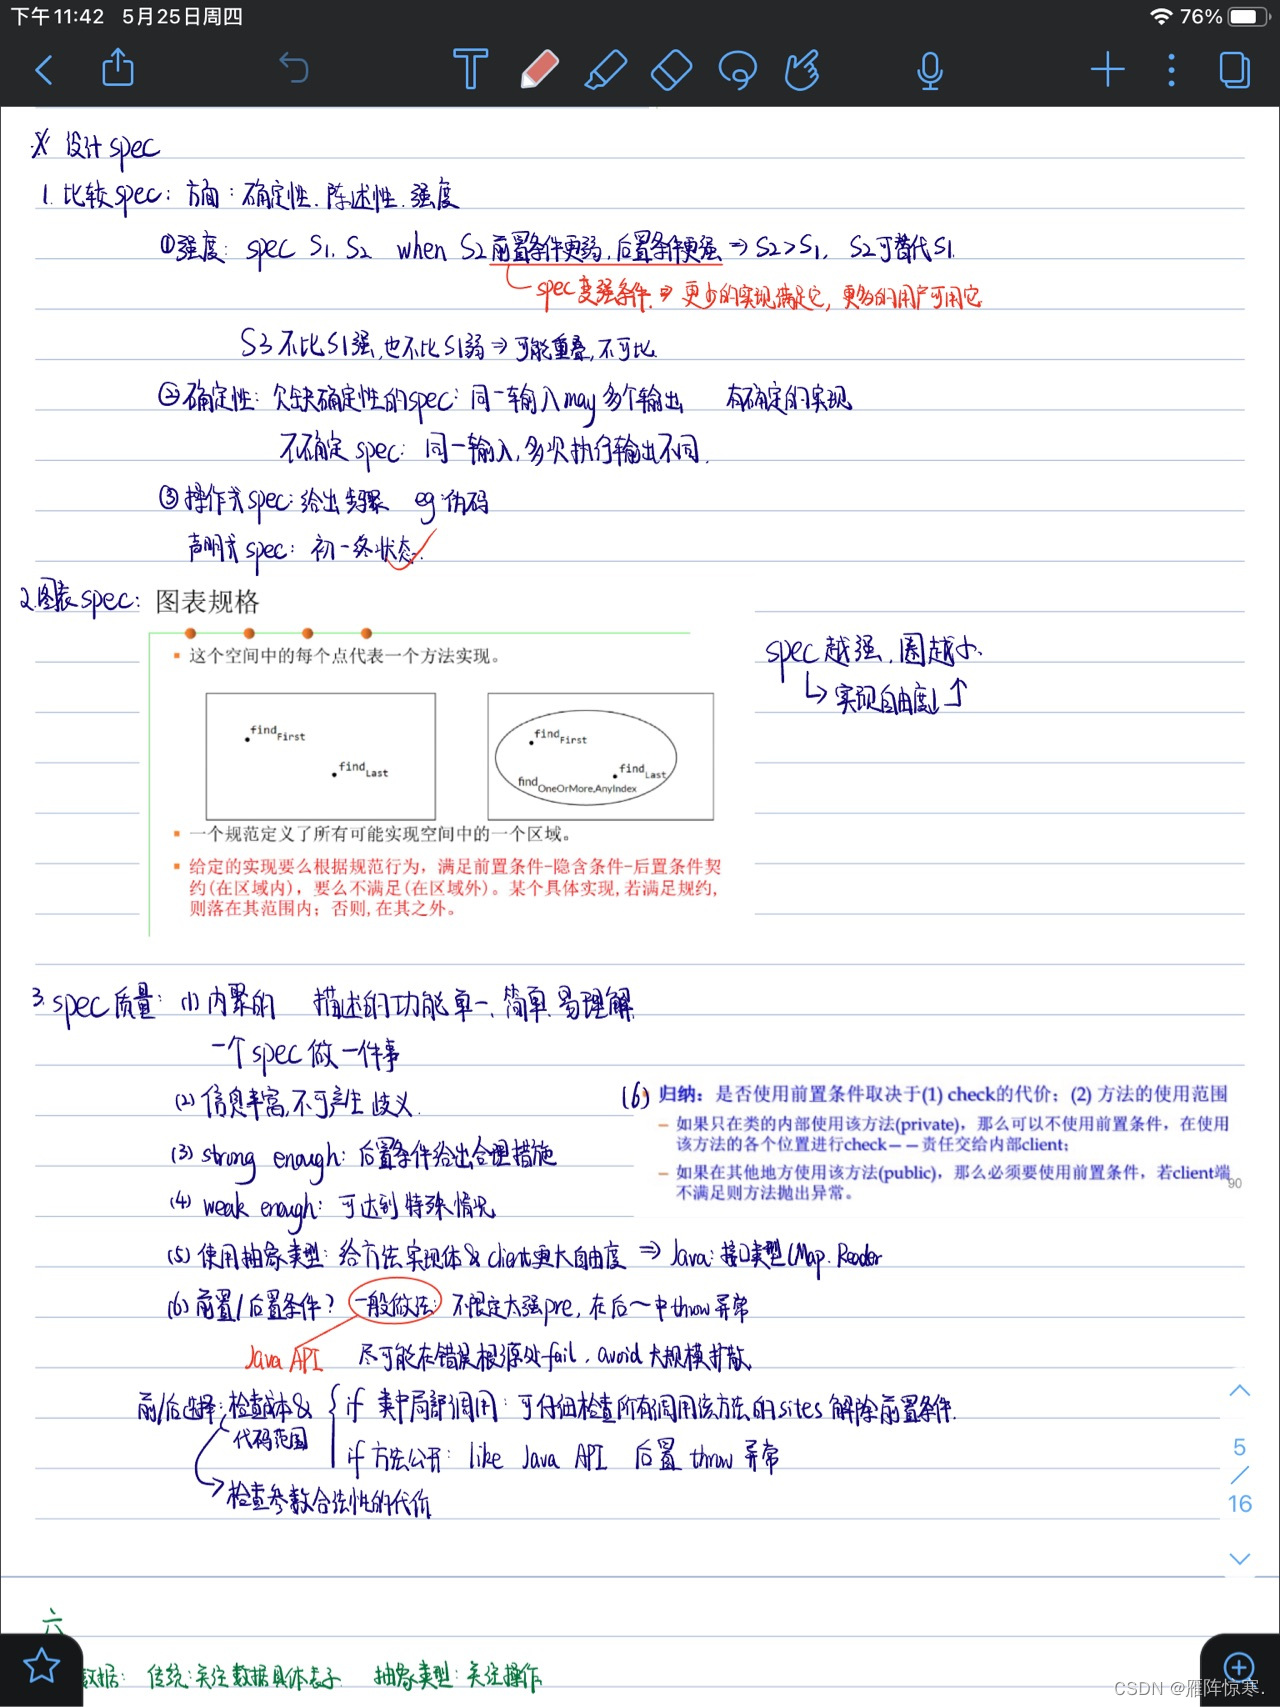 下午11:42 5月25日周四
76%
※ 设计spec
1. 比较spec：方面：确定性、陈述性、强度
①强度：spec S1、S2 when S2前置条件更弱，后置条件更强 ⇒ S2>S1，S2可替代S1.
spec变强条件 ⇒ 更少的实现满足它，更多的用户可用它
S3不比S1强，也不比S1弱 ⇒ 可能重叠，不可比
②确定性：欠缺确定性的spec：同一输入may多个输出 有确定的实现
不确定spec：同一输入，多次执行输出不同.
③操作式spec：给出步骤 eg 伪码
声明式spec：初-终状态.
2.图表spec：
图表规格
这个空间中的每个点代表一个方法实现。
spec越强，圈越小
↳ 实现自由度↑
findFirst
findLast
findFirst
findLast
findOneOrMore,AnyIndex
一个规范定义了所有可能实现空间中的一个区域。
给定的实现要么根据规范行为，满足前置条件-隐含条件-后置条件契
约(在区域内)，要么不满足(在区域外)。某个具体实现,若满足规约,
则落在其范围内；否则,在其之外。
3. spec质量：(1) 内聚的 描述的功能单一、简单、易理解
一个spec做一件事
(2) 信息丰富，不可产生歧义.
(6) 归纳：是否使用前置条件取决于(1) check的代价；(2) 方法的使用范围
– 如果只在类的内部使用该方法(private)，那么可以不使用前置条件，在使用
该方法的各个位置进行check——责任交给内部client；
– 如果在其他地方使用该方法(public)，那么必须要使用前置条件，若client端
不满足则方法抛出异常。
90
(3) strong enough：后置条件给出合理措施
(4) weak enough：可达到特殊情况
(5) 使用抽象类型：给方法实现体&client更大自由度 ⇒ Java：接口类型(Map、Reader
(6) 前置/后置条件？ 一般做法：不限定太强pre，在后~中throw异常
Java API 尽可能在错误根源处fail，avoid大规模扩散
前/后选择：检查成本& 代码范围
if 类中局部调用：可仔细检查所有调用该方法的sites 解除前置条件.
if 方法公开：like Java API 后置 throw 异常
检查参数合法性的代价
5
/
16
六
数据： 传统：关注数据具体表示 抽象类型：关注操作
CSDN @雁阵惊寒.